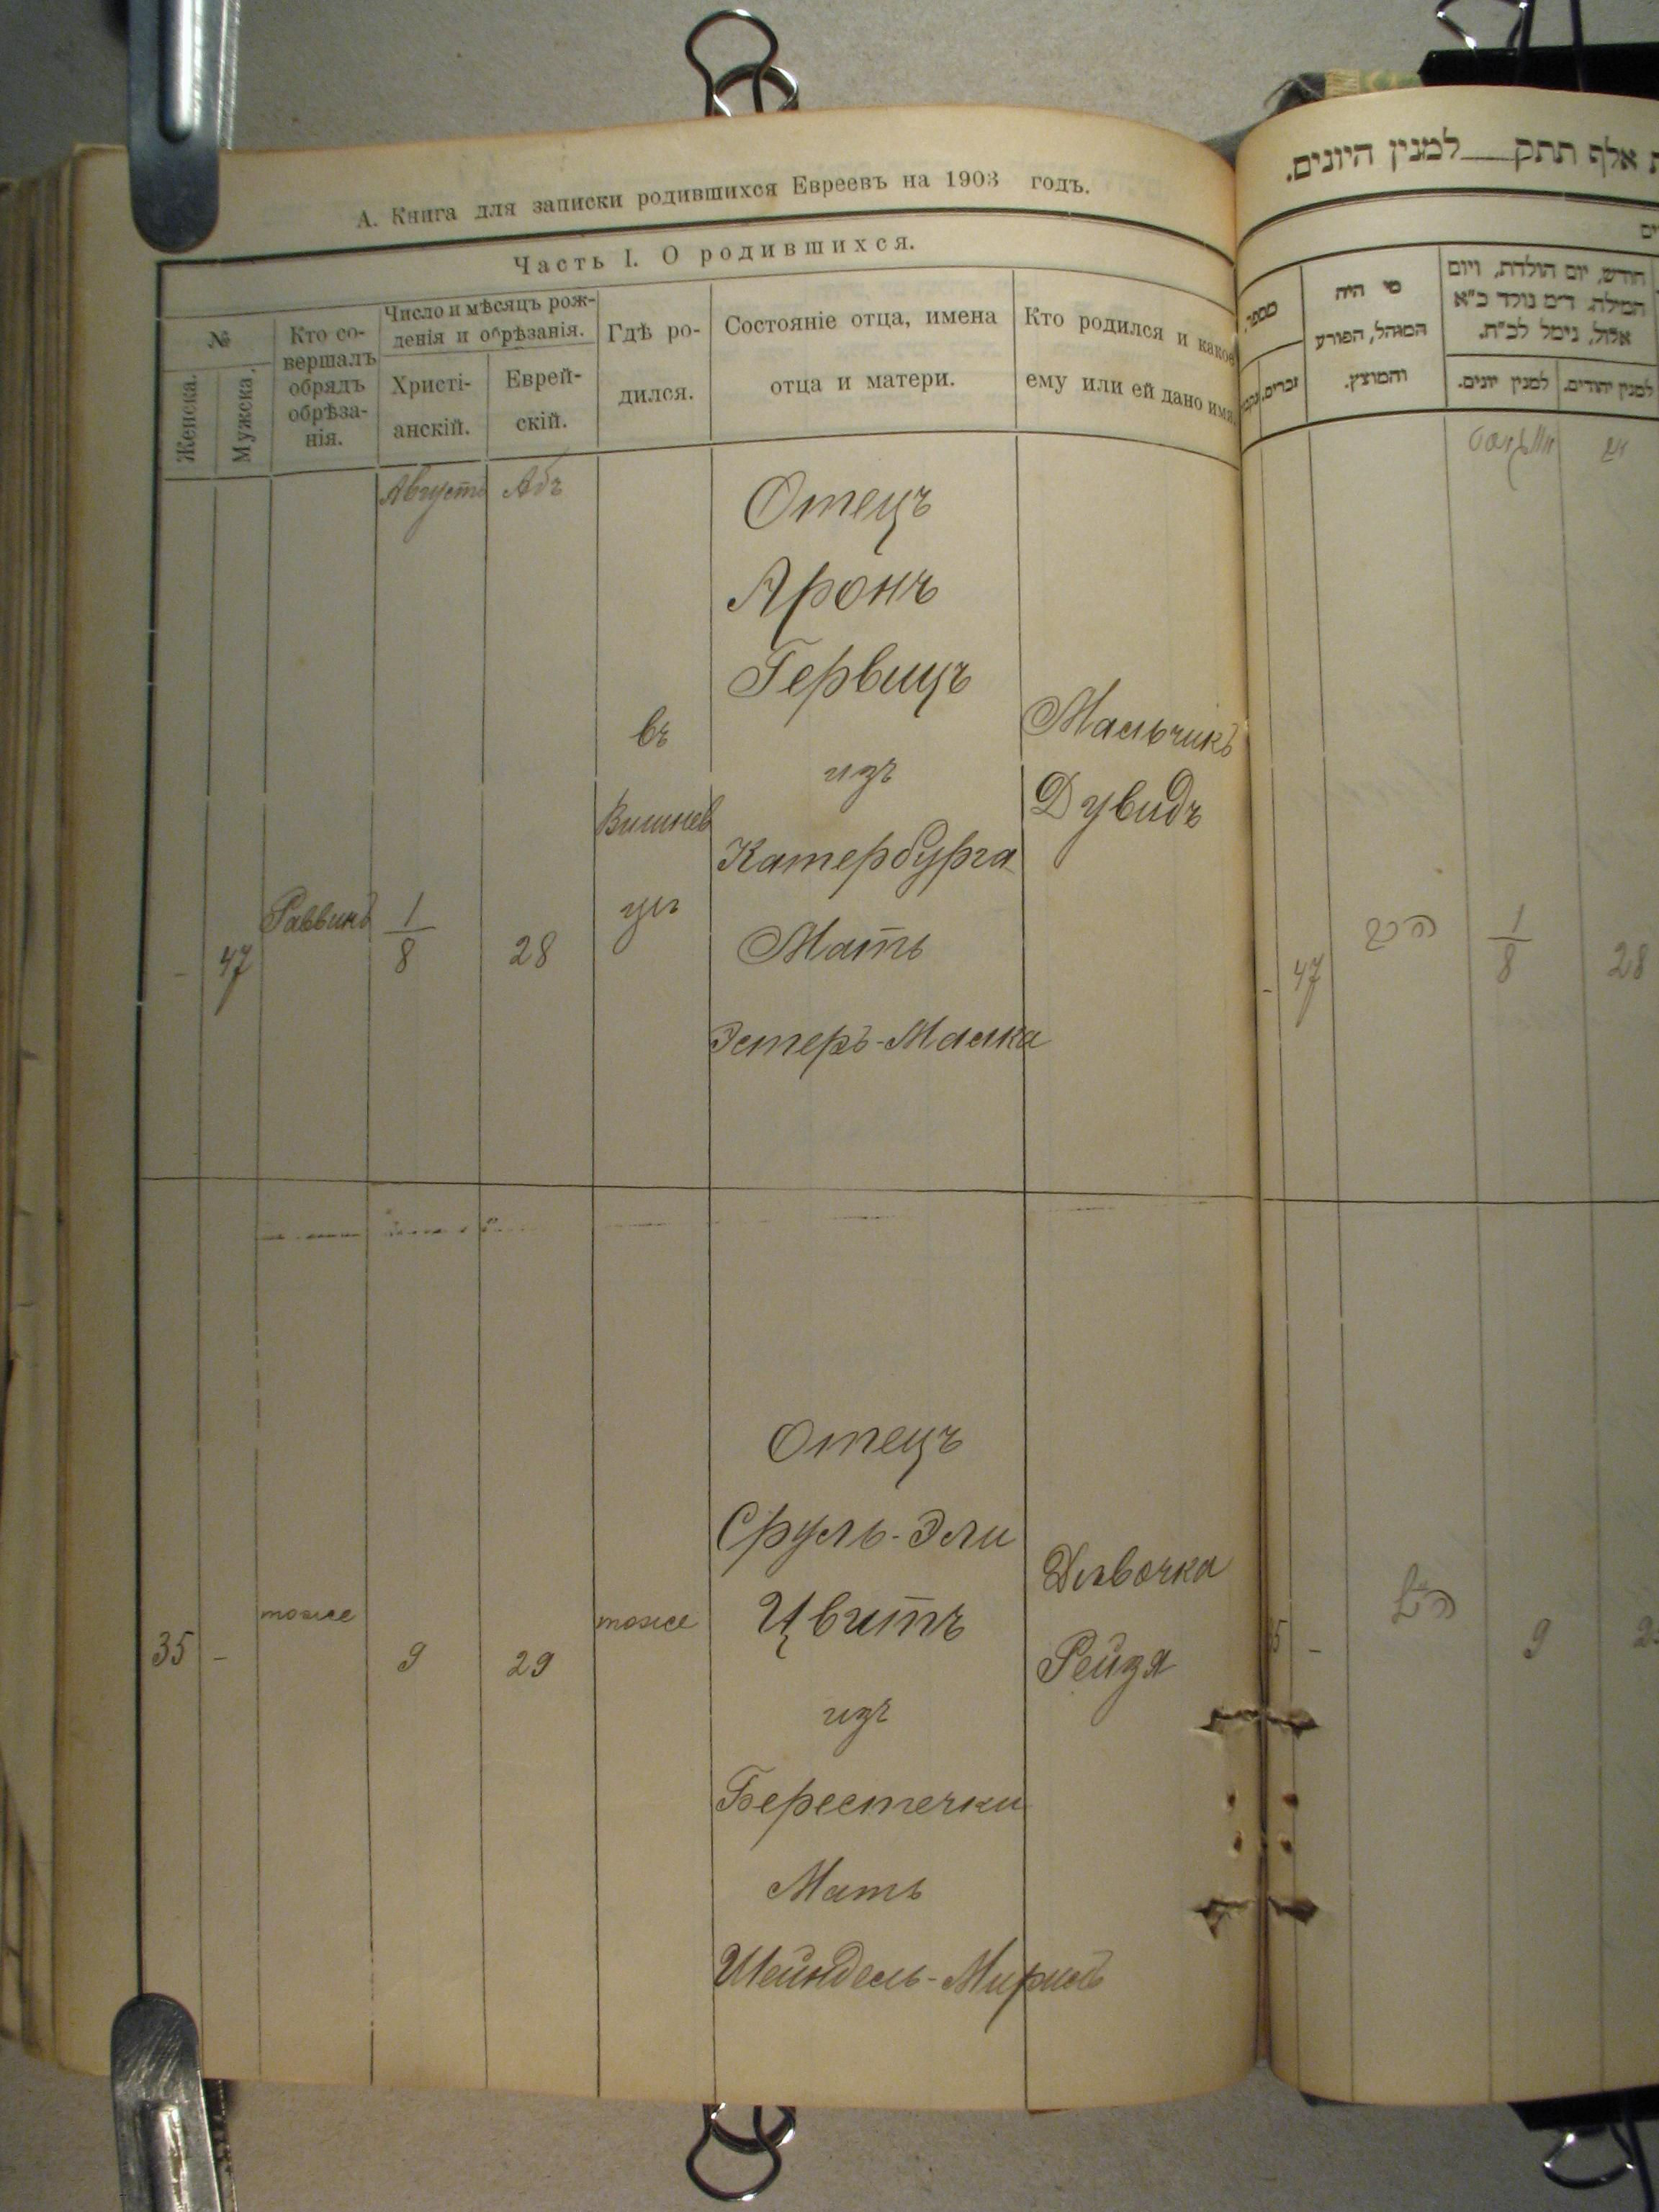 А. Книга для записки родившихся Евреевъ на 1903 годъ.
Часть I. О родившихся.
№
Женска.
Мужска.
Кто со-
вершалъ
обрядъ
обрѣза-
нія.
Число и мѣсяцъ рож-
денія и обрѣзанія.
Христі-
анскій.
Еврей-
скій.
Гдѣ ро-
дился.
Состояніе отца, имена
отца и матери.
Кто родился и какое
ему или ей дано имя.
Августъ
Абъ
-
47
Раввинъ
1/8
28
въ
Вишнев
цѣ
Отецъ
Аронъ
Гервицъ
изъ
Катербурга
Мать
Эстеръ-Малка
Мальчикъ
Дувидъ
35
-
тоже
9
29
тоже
Отецъ
Сруль-Эли
Цвитъ
изъ
Берестечки
Мать
Шейндель-
Дѣвочка
Рейзя
אלף תתק למנין היונים.
מספר
זכרים.
מי היה
המוהל, הפורע
והמוצץ.
חודש, יום הולדת, ויום
המילה. ד״מ נולד כ״א
אלול, נימל לכ״ח.
למנין יונים.
למנין יהודים.
אויגוסט
אב
-
47
הרב
1/8
28
-
9